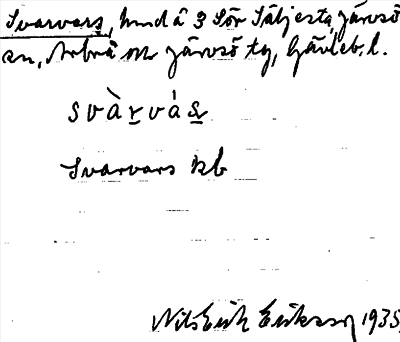 Svarvars, hmd å 3 Sör Säljesta, Järvsö
sn, Arbrå och Järvsö tg, Gävleb. l.
svàr̲vás̲
Svarvars kb
Nils Erik Eriksson 1935